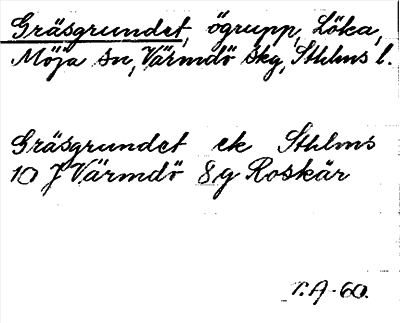 Gräsgrundet, ögrupp, Löka,
Möja sn, Värmdö skg, Sthlms l.
Gräsgrundet ek Sthlms
10 J Värmdö 8g Roskär
r.A-60.